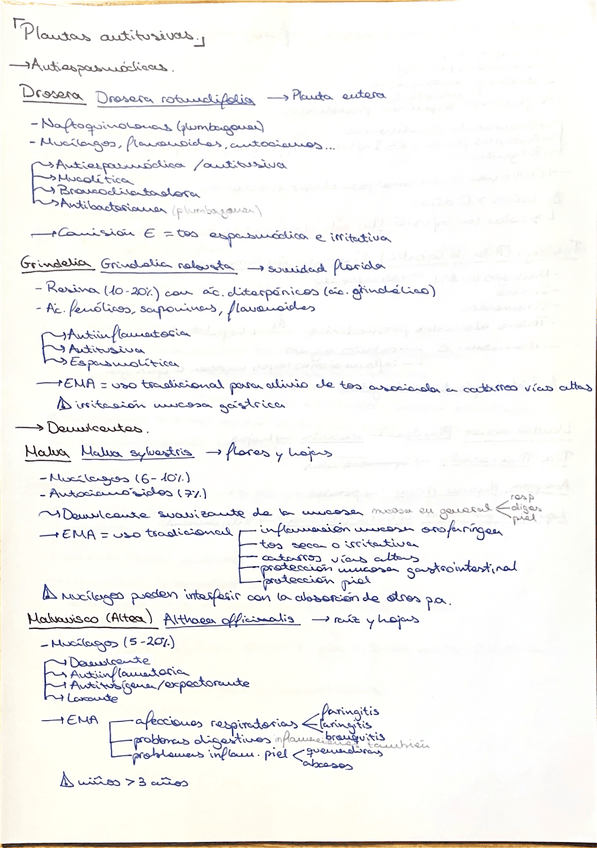 「Plantas antitusivas.」
→Antiespasmódicas.
Drosera Drosera rotundifolia → Planta entera
- Naftoquinolonas (plumbagona)
- Mucílagos, flavonoides, antocianos...
→Antiespasmódica / antitusiva
→Mucolítica
→Broncodilatadora
→Antibacteriana (plumbagona)
→Comisión E = tos espasmódica e irritativa
Grindelia Grindelia robusta → sumidad florida
- Resina (10-20%) con ác. diterpénicos (ác. grindélico)
- Ác. fenólicos, saponinas, flavonoides
→Antiinflamatoria
→Antitusiva
→Espasmolítica
→EMA = uso tradicional para alivio de tos asociada a catarros vías altas
⚠ irritación mucosa gástrica
→ Demulcentes.
Malva Malva sylvestris → flores y hojas
- Mucílagos (6-10%)
- Antocianósidos (7%)
→Demulcente suavizante de la mucosa en general resp
diges
piel
→EMA = uso tradicional inflamación mucosa orofaríngea
tos seca o irritativa
catarros vías altas
protección mucosa gastrointestinal
protección piel
⚠ Mucílagos pueden interferir con la absorción de otros p.a.
Malvavisco (Altea) Althaea officinalis → raíz y hojas
- Mucílagos (5-20%)
→Demulcente
→Antiinflamatoria
→Antitusígena/expectorante
→Laxante
→EMA afecciones respiratorias faringitis
laringitis
bronquitis
problemas digestivos inflamaciones también
problemas inflam. piel quemaduras
abscesos
⚠ niños > 3 años